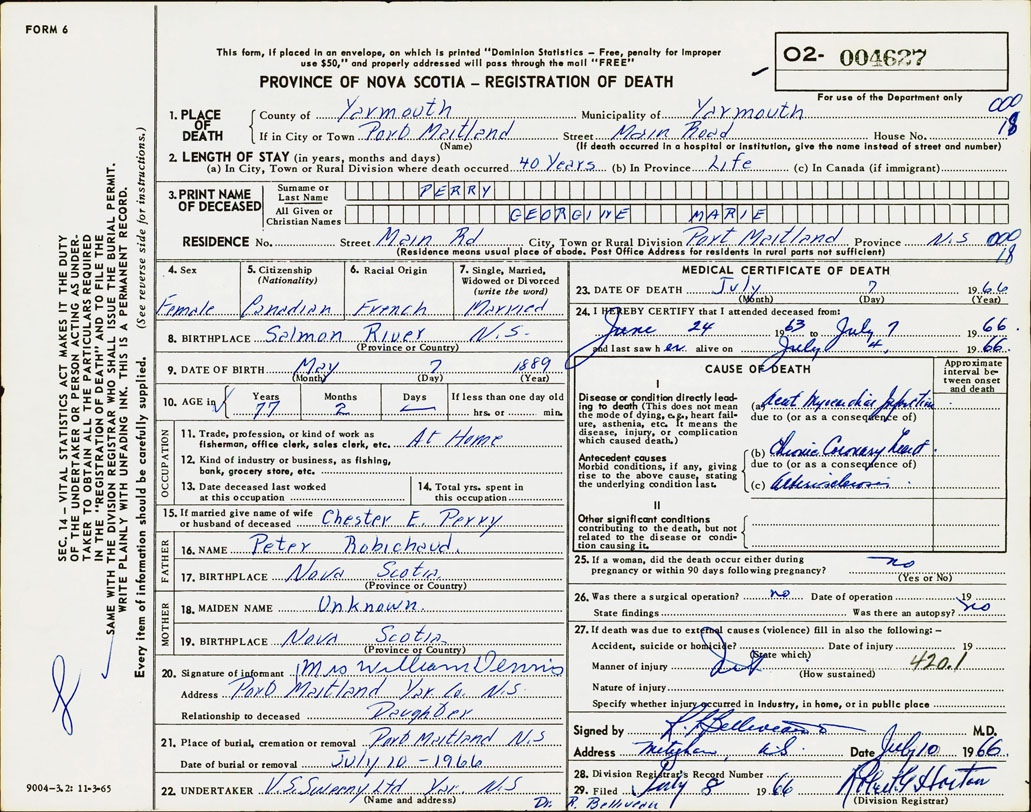 FORM 6
This form, if placed in an envelope, on which is printed "Dominion Statistics – Free, penalty for improper
use $50," and properly addressed will pass through the mail "FREE"
PROVINCE OF NOVA SCOTIA – REGISTRATION OF DEATH
O2- 004627
For use of the Department only
000
18
1. PLACE OF DEATH
County of Yarmouth Municipality of Yarmouth
If in City or Town Port Maitland Street Main Road House No.
(Name) (If death occurred in a hospital or institution, give the name instead of street and number)
2. LENGTH OF STAY (in years, months and days)
(a) In City, Town or Rural Division where death occurred 40 Years (b) In Province Life (c) In Canada (if immigrant)
3. PRINT NAME OF DECEASED
Surname or Last Name PERRY
All Given or Christian Names GEORGINE MARIE
RESIDENCE No. Street Main Rd City, Town or Rural Division Port Maitland Province N.S 000
(Residence means usual place of abode. Post Office Address for residents in rural parts not sufficient) 18
4. Sex
Female
5. Citizenship (Nationality)
Canadian
6. Racial Origin
French
7. Single, Married, Widowed or Divorced (write the word)
Married
8. BIRTHPLACE Salmon River N.S.
(Province or Country)
9. DATE OF BIRTH May 7 1889
(Month) (Day) (Year)
10. AGE in Years Months Days If less than one day old
77 2 hrs. or min.
OCCUPATION
11. Trade, profession, or kind of work as fisherman, office clerk, sales clerk, etc. At Home
12. Kind of industry or business, as fishing, bank, grocery store, etc.
13. Date deceased last worked at this occupation
14. Total yrs. spent in this occupation
15. If married give name of wife or husband of deceased Chester E. Perry
FATHER
16. NAME Peter Robichaud.
17. BIRTHPLACE Nova Scotia
(Province or Country)
MOTHER
18. MAIDEN NAME Unknown.
19. BIRTHPLACE Nova Scotia
(Province or Country)
20. Signature of informant Mrs William Dennis
Address Port Maitland Yar Co. N.S.
Relationship to deceased Daughter
21. Place of burial, cremation or removal Port Maitland N S
Date of burial or removal July 10 - 1966
22. UNDERTAKER V.S. Sweeny Ltd Yar. N.S
(Name and address)
MEDICAL CERTIFICATE OF DEATH
23. DATE OF DEATH July 7 1966
(Month) (Day) (Year)
24. I HEREBY CERTIFY that I attended deceased from:
June 24 1963 to July 7 1966
and last saw her alive on July 4, 1966.
CAUSE OF DEATH
Approximate interval between onset and death
I
Disease or condition directly leading to death (This does not mean the mode of dying, e.g., heart failure, asthenia, etc. It means the disease, injury, or complication which caused death.)
(a) Acut Myocardial Infarction
due to (or as a consequence of)
Antecedent causes
Morbid conditions, if any, giving rise to the above cause, stating the underlying condition last.
(b) Chronic Coronary Heart
due to (or as a consequence of)
(c) Arteriosclerosis
II
Other significant conditions
contributing to the death, but not related to the disease or condition causing it.
25. If a woman, did the death occur either during pregnancy or within 90 days following pregnancy? no
(Yes or No)
26. Was there a surgical operation? no Date of operation 19
State findings Was there an autopsy? no
27. If death was due to external causes (violence) fill in also the following: –
Accident, suicide or homicide? Date of injury 19
(State which)
Manner of injury 420.1
(How sustained)
Nature of injury
Specify whether injury occurred in industry, in home, or in public place
Signed by R. Belliveau M.D.
Address Meteghan N.S. Date July 10 1966
28. Division Registrar's Record Number
29. Filed July 8 1966 Robert G Horton
(Division Registrar)
Dr. R. Belliveau
SEC. 14 – VITAL STATISTICS ACT MAKES IT THE DUTY
OF THE UNDERTAKER OR PERSON ACTING AS UNDER-
TAKER TO OBTAIN ALL THE PARTICULARS REQUIRED
IN THE "REGISTRATION OF DEATH" AND TO FILE THE
SAME WITH THE DIVISION REGISTRAR WHO SHALL ISSUE THE BURIAL PERMIT.
WRITE PLAINLY WITH UNFADING INK. THIS IS A PERMANENT RECORD.
Every item of information should be carefully supplied. (See reverse side for instructions.)
9004-3.2: 11-3-65